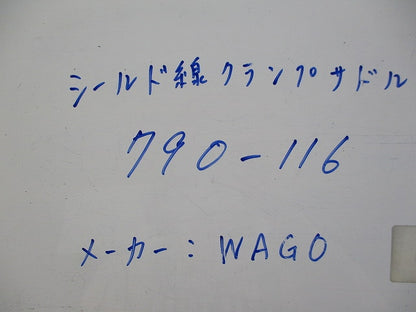 シールド線クランプサドル
790-116
メーカー：WAGO